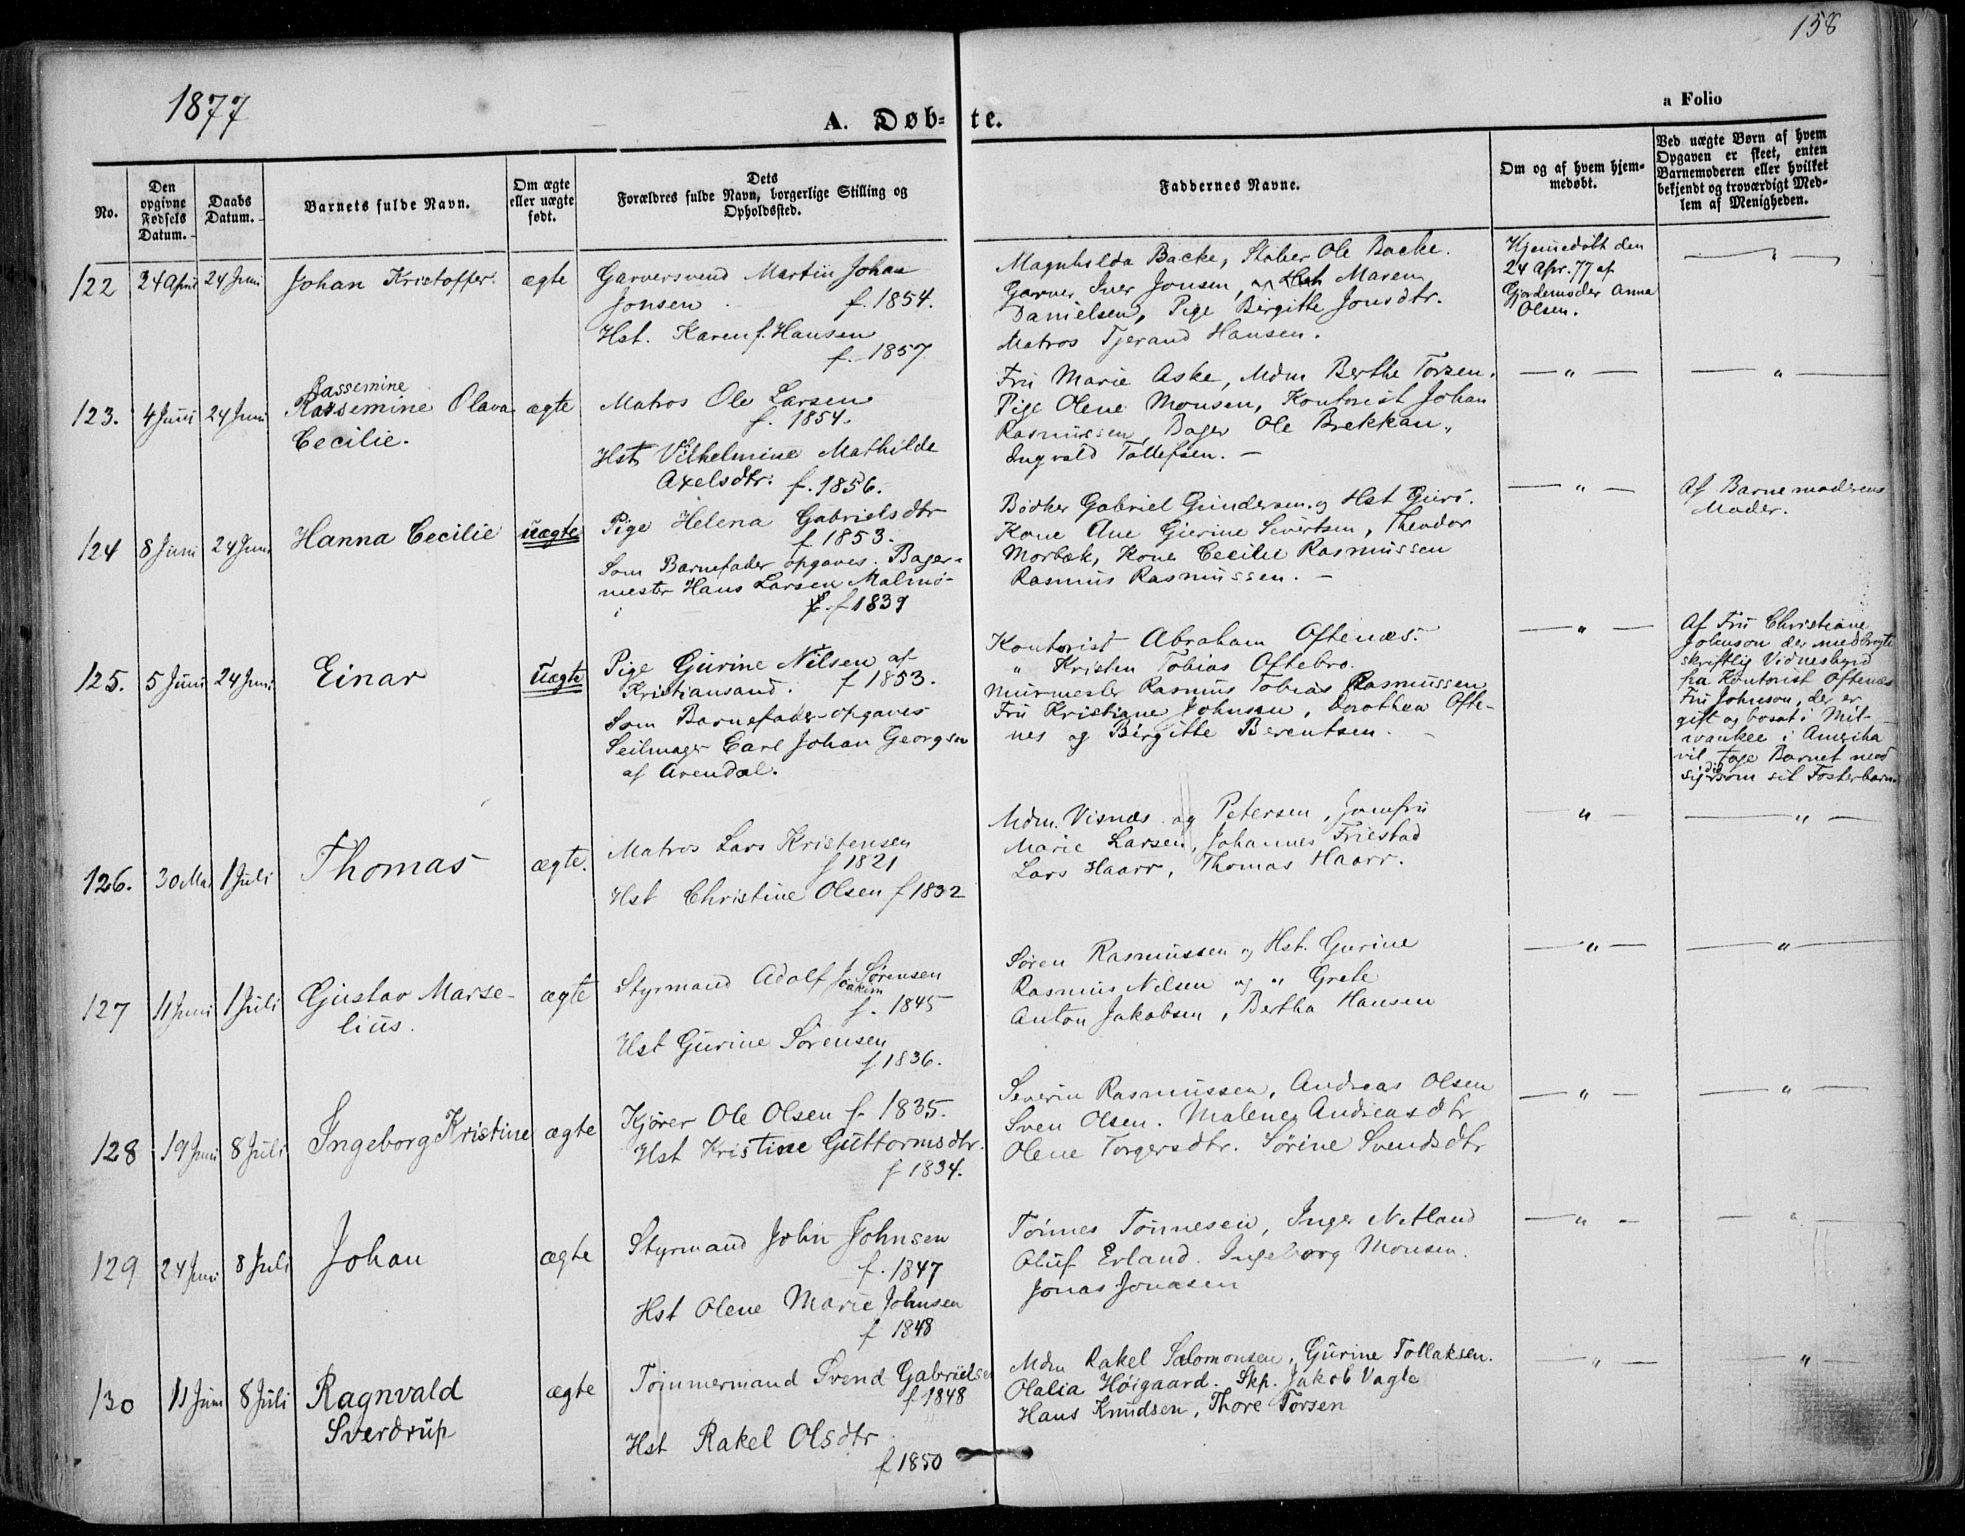 158
1877
A. Døb-te.
a Folio
No.
Den opgivne Fødsels Datum.
Daabs Datum.
Barnets fulde Navn.
Om ægte eller uægte født.
Dets
Forældres fulde Navn, borgerlige Stilling og
Opholdssted.
Faddernes Navne.
Om og af hvem hjemmedøbt.
Ved uægte Børn af hvem
Opgaven er skeet, enten
Barnemoderen eller hvilket
bekjendt og troværdigt Med-
lem af Menigheden.
122 24 April 24 Juni Johan Kristoffer ægte
Garversvend Martin Johan
Jonsen f. 1854.
Hst. Karen f. Hansen
f. 1857
Magnhilda Backe, Støber Ole Backe.
Garver Iver Jonsen, og Hst Maren
Danielsen, Pige Birgitte Jonsdtr.
Matros Tjerand Hansen.
Hjemmedøbt den
24 Apr. 77 af
Gjordemoder Anna
Olsen.
— " —
123. 4 Juni 24 Juni
Bassemine
Olava ægte
Cecilie.
Matros Ole Larsen
f. 1854.
Hst Vilhelmine Mathilde
Axelsdtr. f. 1856.
Fru Marie Aske, Mdm Berthe Torsen.
Pige Olene Monsen, Kontorist Johan
Rasmussen, Bager Ole Brekkan,
Ingvald Tollefsen. —
— " —
— " —
124 8 Juni 24 Juni Hanna Cecilie uægte
Pige Helena Gabrielsdtr
f 1853.
Som Barnefader opgaves. Bager-
mester Hans Larsen Malmø-
f 1839
Bødker Gabriel Gundersen og Hst Guri.
Kone Ane Gurine Sivertsen, Theodor
Morbæk, Kone Cecilie Rasmussen
Rasmus Rasmussen. —
— " —
Af Barnemoderens
Moder.
125. 5 Juni 24 Juni Einar uægte
Pige Gurine Nilsen af
Kristiansand. f 1853.
Som Barnefader opgaves
Seilmager Carl Johan Georgsen
af Arendal.
Kontorist Abraham Oftenæs.
" Kristen Tobias Oftebro.
Murmester Rasmus Tobias Rasmussen
Fru Kristiane Johnson, Dorothea Ofte-
nes og Birgitte Berentsen. —
— " —
Af Fru Christiane
Johnson der medbragte
skriftlig Vidnesbyrd
fra Kontorist Oftenæs
Fru Johnson, der er
gift og bosat i Mil-
waukee i Amerika
vil tage Barnet med
sig som sit Fosterbarn.
126. 30 Mai 1 Juli Thomas ægte.
Matros Lars Kristensen
f 1821
Hst Christine Olsen f 1832
Mdm. Visnæs og Petersen, Jomfru
Marie Larsen, Johannes Friestad
Lars Haarr, Thomas Haarr.
— " —
— " —
127 11 Juni 1 Juli Gustav Marse-
lius. ægte
Styrmand Adolf Joakim Sørensen
f. 1845
Hst Gurine Sørensen
f 1836.
Søren Rasmussen og Hst. Gurine
Rasmus Nilsen og " Grete
Anton Jakobsen, Bertha Hansen
— " —
— " —
128 19 Juni 8 Juli Ingeborg Kristine ægte
Kjører Ole Olsen f. 1835.
Hst Kristine Guttormsdtr.
f 1834.
Severin Rasmussen, Andreas Olsen
Sven Olsen. Malene Andreasdtr
Olene Torgersdtr. Sørine Svendsdtr
— " —
— " —
129 24 Juni 8 Juli Johan ægte
Styrmand John Johnsen
f. 1847
Hst Olene Marie Johnsen
f 1848
Tønnes Tønnesen, Inger Netland
Oluf Erland. Ingeborg Monsen.
Jonas Jonasen
— " —
— " —
130 11 Juni 8 Juli Ragnvald
Sverdrup ægte
Tømmermand Svend Gabrielsen
f 1848
Hst Rakel Olsdtr
f 1850
Mdm Rakel Salomonsen, Gurine Tollaksen.
Olalia Høigaard. Skp. Jakob Vagle
Hans Knudsen, Thore Torsen
— " —
— " —